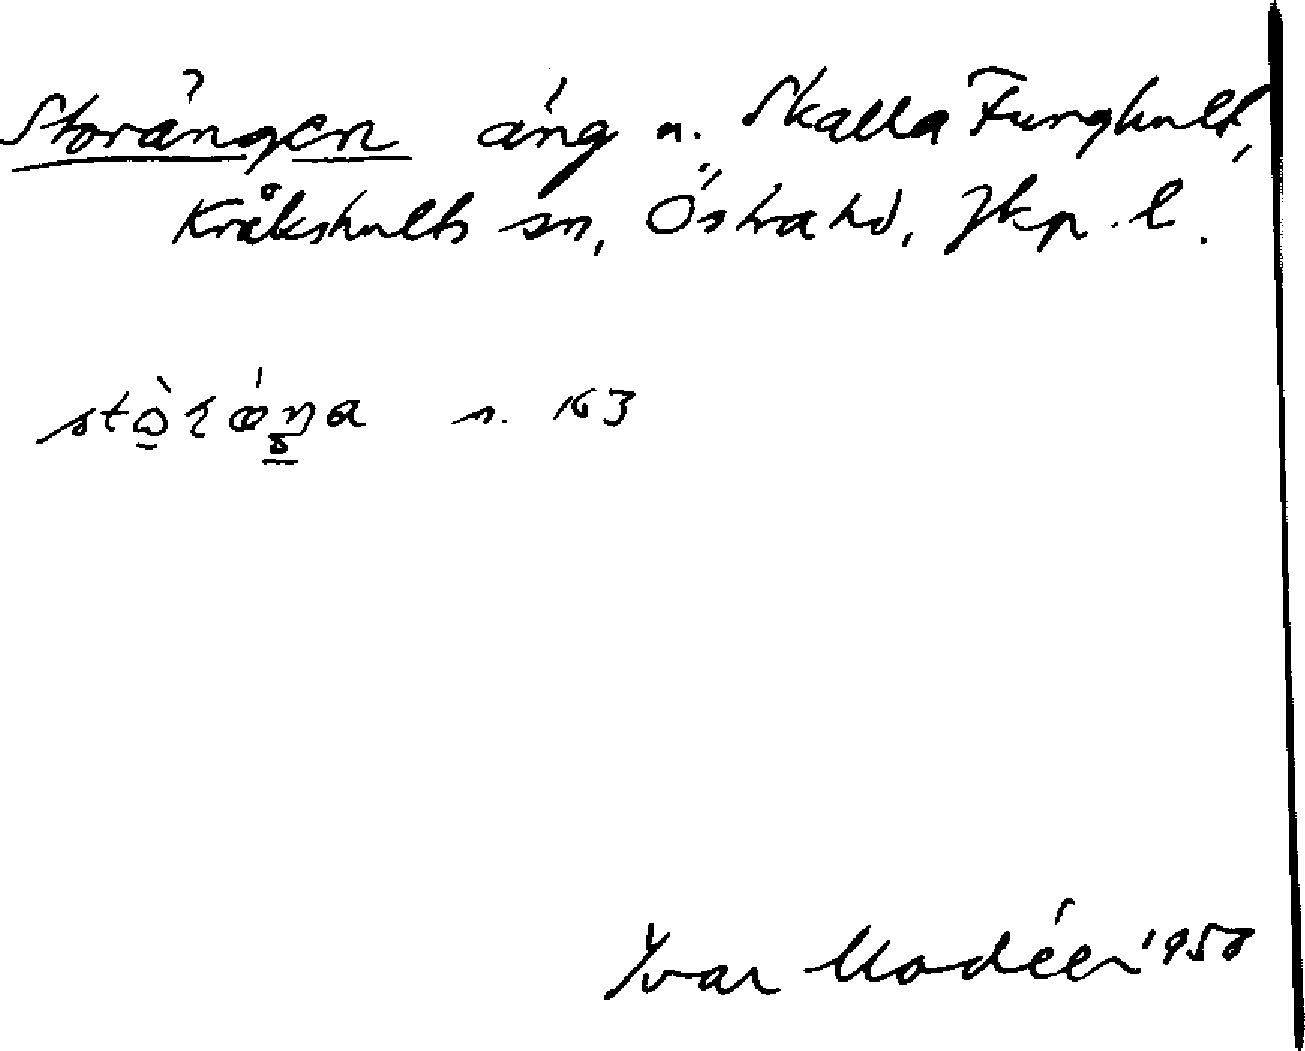 Storängen äng n. Skalla Furghult,
Kråkshults sn, Östra hd, Jkp. l.
n. 163
Ivar Modéer 1950